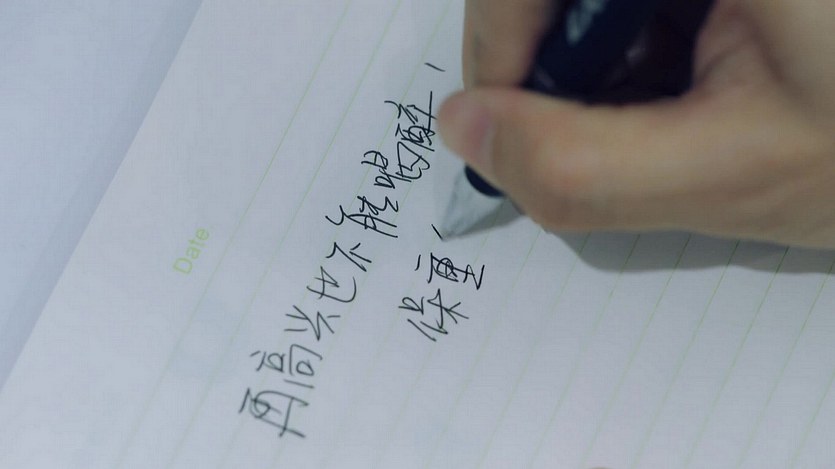 Date
再高兴也不能喝酒，
保重，